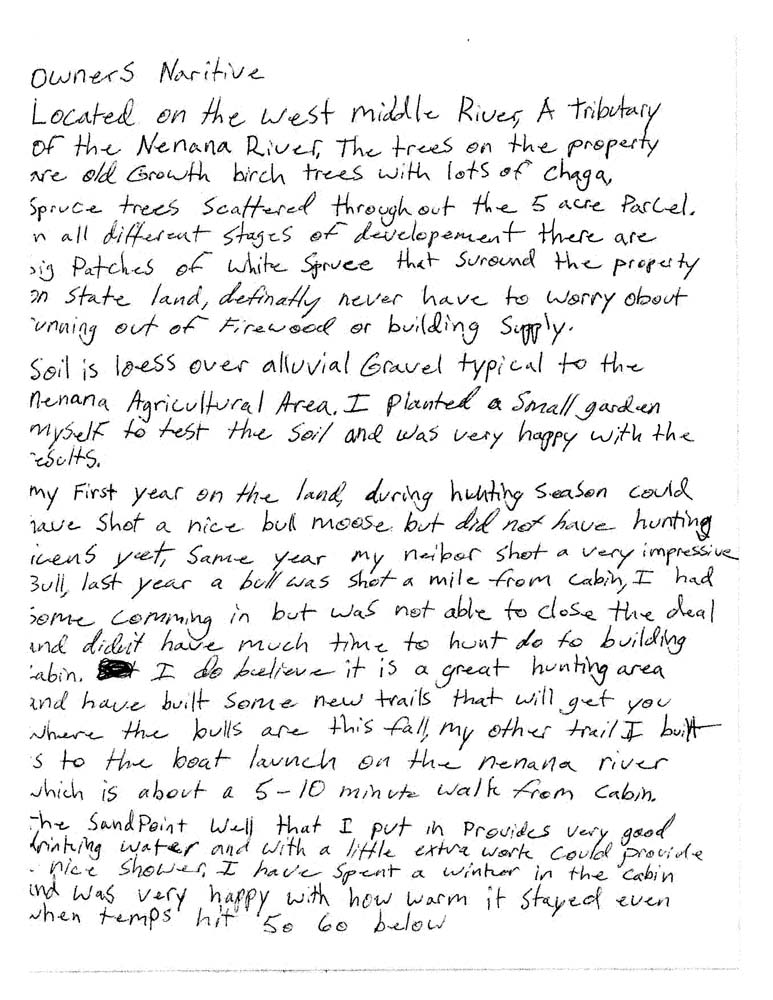 Owners Naritive
Located on the west middle River, A tributary
of the Nenana River, The trees on the property
are old Growth birch trees with lots of chaga,
Spruce trees Scattered throughout the 5 acre Parcel.
n all different stages of developement there are
big Patches of white Spruce that Suround the property
on State land, definatly never have to worry about
running out of Firewood or building Supply.
Soil is loess over alluvial Gravel typical to the
Nenana Agricultural Area. I Planted a Small garden
myself to test the Soil and was very happy with the
results.
my First year on the land, during hunting season could
have Shot a nice bull moose but did not have hunting
icens yeet, Same year my neibor shot a very impressive
Bull, last year a bull was shot a mile from cabin, I had
Some comming in but was not able to close the deal
and didn't have much time to hunt do to building
cabin. I do beelieve it is a great hunting area
and have built some new trails that will get you
where the bulls are this fall, my other trail I built
is to the boat launch on the nenana river
which is about a 5-10 minute walk from Cabin.
The SandPoint Well that I put in Provides very good
drinking water and with a little extra work could provide
a nice shower, I have Spent a winter in the cabin
and was very happy with how warm it stayed even
when temps hit 50 60 below